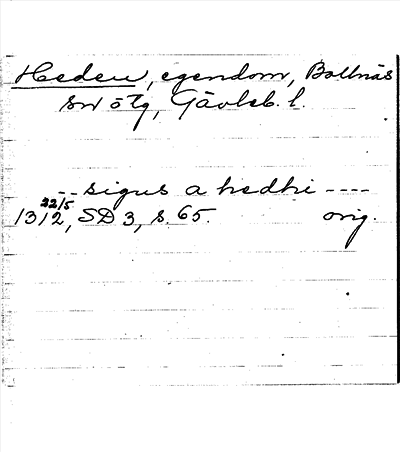 Heden, egendom, Bollnäs
sn ötg, Gävleb. l.
-- sigus a hedhi ----
22/5
1312, SD 3, s. 65. orig.